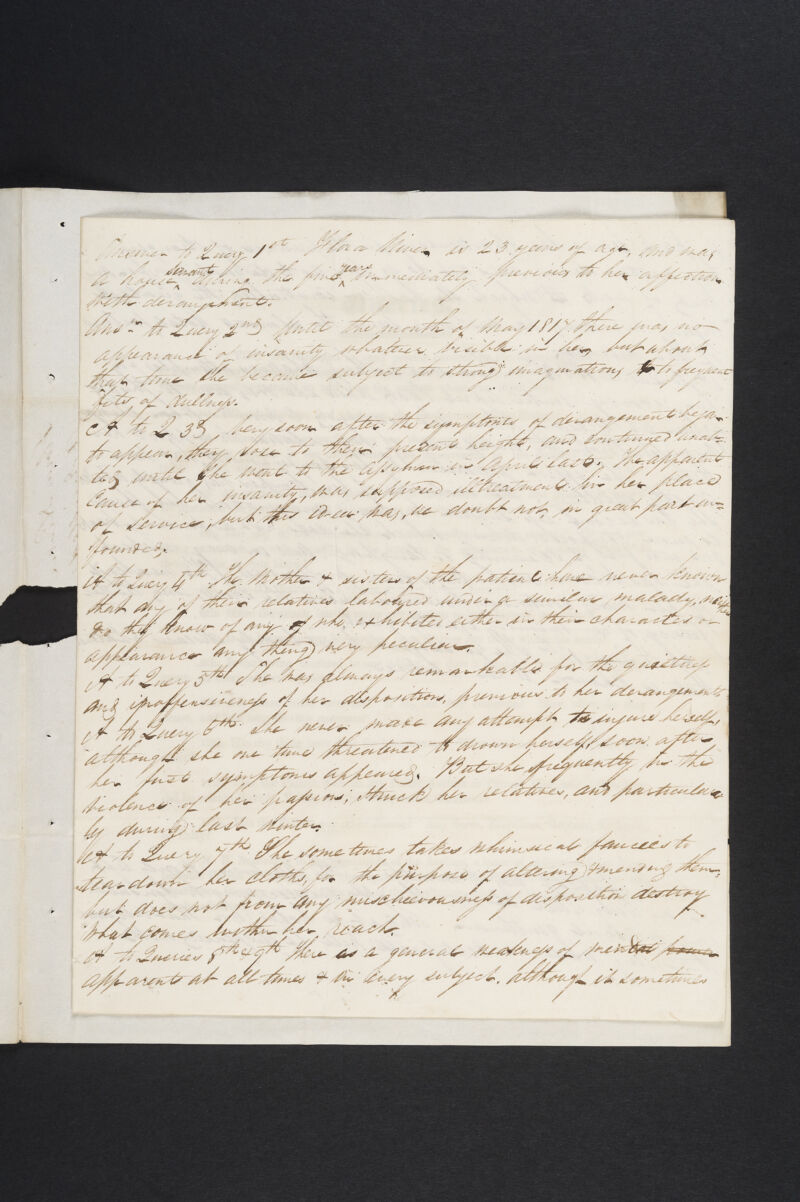 Answer to Query 1st Flora Niven is 23 years of age, and was
a house servant during the five years immediately previous to her affection
with derangement.
Ansr. to Query 2nd Until the month of May 1817 there was no
appearance of insanity whatever visible in her, but about
that time she became subject to strong imaginations & to frequent
fits of dullness.
A to Q 3d Very soon after the symptoms of derangement began
to appear, they rose to their present height, and continued unaba-
ted until she went to the asylum in April last. The apparent
Cause of her insanity, was supposed illtreatment in her place
of service, but this idea was, we doubt not, in great part un-
founded.
A to Query 4th The Mother & sisters of the patient have never known
that any of their relatives laboured under a similar malady, neither
do they know of any of who exhibited either in their character or
appearance any thing very peculiar.
A to Query 5th She was always remarkable for the quietness
and inoffensiveness of her disposition, previous to her derangement
A to Query 6th She never make any attempt to injure herself,
although she one time threatened to drown herself soon after
her first symptoms appeared. But she frequently in the
violence of her passion, struck her relatives, and particular-
ly during last winter.
A to Query 7th She sometimes takes whimsical fancies to
tear down her cloths, for the purpose of altering & mending them,
but does not from any mischievousness of disposition destroy
what comes within her reach.
A to Queries 8th & 9th There is a general weakness of mental power
apparent at all times & on every subject, although it sometimes